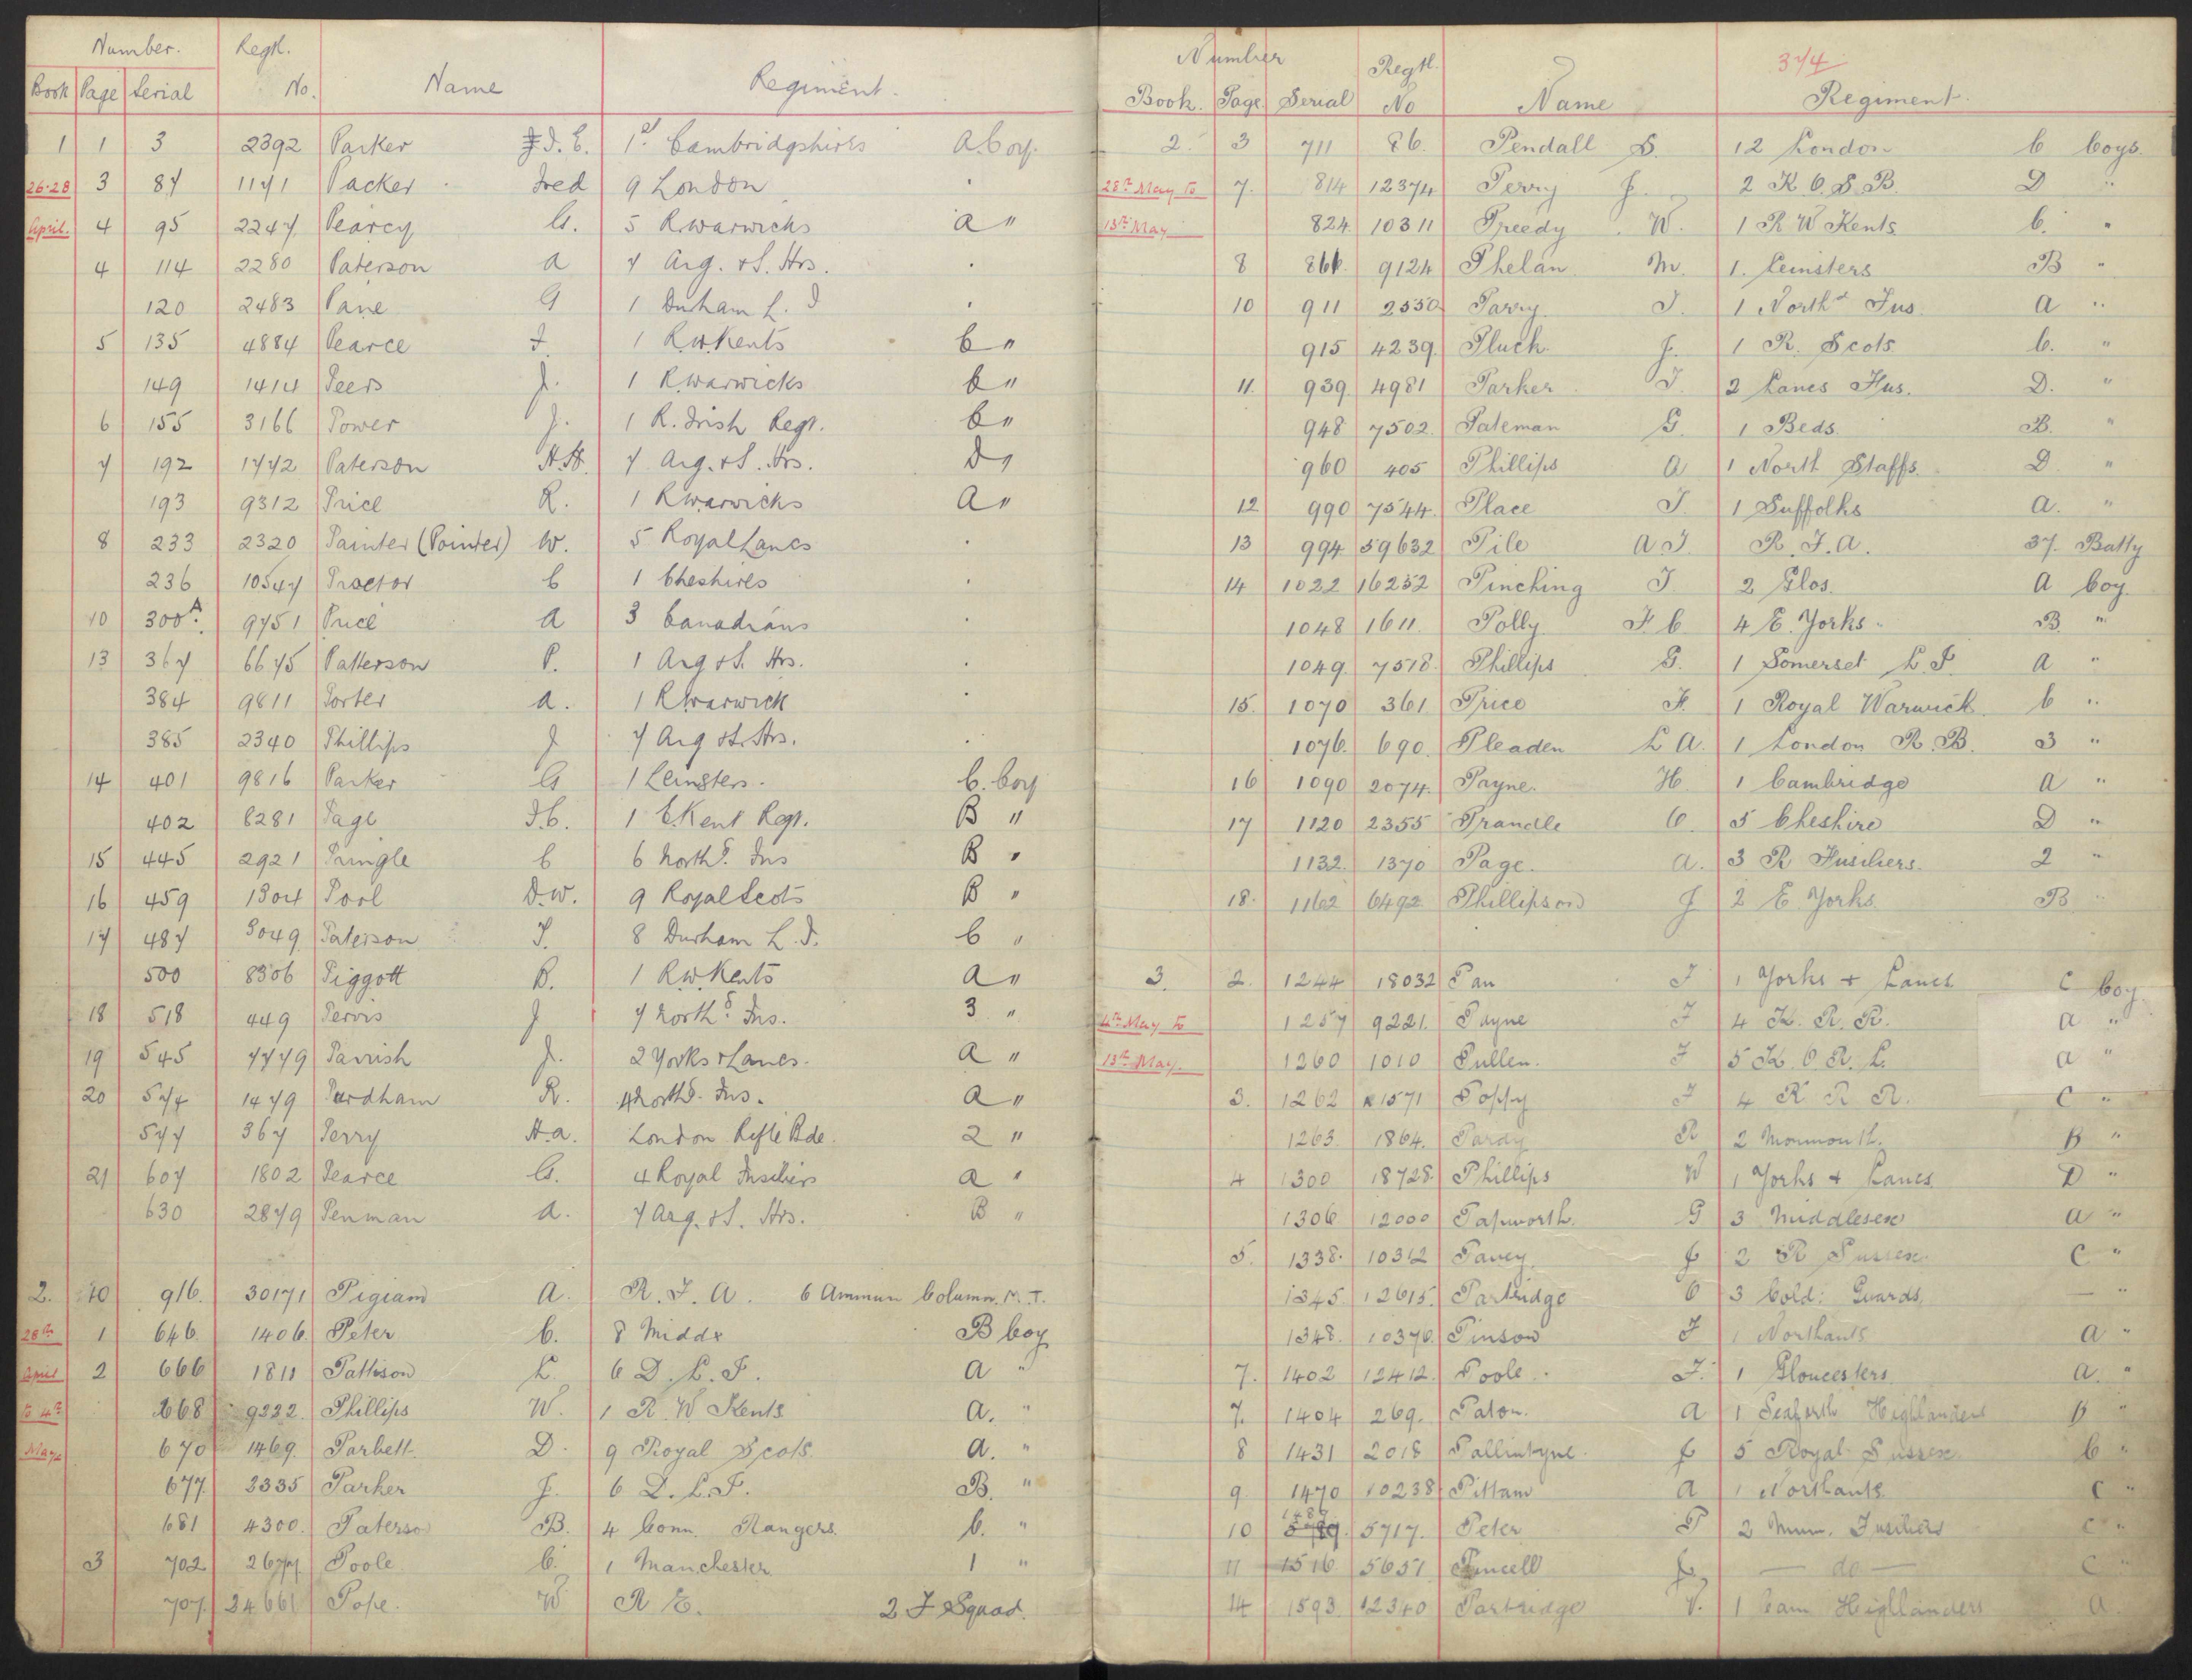 Number. Regtl.
Book Page Serial No. Name Regiment.
1 1 3 2392 Parker J.E. 1st Cambridgshires A. Coy.
26-28 3 87 1171 Packer Fred 9 London
April. 4 95 2247 Pearcy G. 5 R. Warwicks A "
4 114 2280 Paterson A 7 Arg. & S. Hrs.
120 2483 Pane G 1 Durham L. I
5 135 4884 Pearce F. 1 R.W. Kents C "
149 1414 Peers J. 1 R. Warwicks C "
6 155 3166 Power J. 1 R. Irish Regt. C "
7 192 1772 Paterson H.H. 7 Arg. & S. Hrs. D "
193 9312 Price R. 1 R Warwicks A "
8 233 2320 Painter (Pointer) W. 5 Royal Lancs
236 10547 Proctor C 1 Cheshires
10 300A. 9751 Price A 3 Canadians
13 367 6675 Patterson P. 1 Arg & S. Hrs.
384 9811 Porter A. 1 R Warwick
385 2340 Phillips J 7 Arg & S. Hrs.
14 401 9816 Parker G 1 Leinsters. C. Coy
402 8281 Page F.C. 1 E. Kent Regt. B "
15 445 2921 Pringle C 6 North'd. Fus B "
16 459 1304 Pool D.W. 9 Royal Scots B "
17 487 3049 Paterson T. 8 Durham L. I. C "
500 8306 Piggott B. 1 R.W. Kents A "
18 518 449 Pervis J 7 North'd. Fus. 3 "
19 545 7779 Parrish J. 2 Yorks & Lancs. A "
20 574 1479 Purdham R. 4 North'd. Fus. A "
577 367 Perry H.A. London Rifle Bde. 2 "
21 607 1802 Pearce G. 4 Royal Fusiliers A "
630 2879 Penman A. 7 Arg. & S. Hrs. B "
2. 10 916. 30171 A. R. F. A. 6 Ammun Column. M. T.
28th 1 646. 1406. Peter C. 8 Middx B Coy
April 2 666 1811 Pattison L. 6 D. L. I. A "
to 4th 668 9232. Phillips W. 1 R. W Kents A. "
May 670 1469. Parbett D. 9 Royal Scots A. "
677. 2335 Parker J. 6 D. L. I. B. "
681 4300. Paterso B. 4 Conn. Rangers. C. "
3 702 2677 Poole C. 1 Manchester 1 "
707. 24661 Pope. W R E. 2 F Squad.
374
Number Regtl.
Book. Page. Serial No Name Regiment.
2. 3 711 86. Pendall S. 12 London C Coys.
28th May to 7. 814 12374 Perry J. 2 K. O. S. B. D "
13th May 824. 10311 Preedy W. 1 R W Kents C. "
8 866. 9124 Phelan M. 1. Leinsters B "
10 911 2550 Parry. T. 1 North'd Fus. A "
915 4239. Pluck. J. 1 R. Scots C. "
11. 939. 4981 Parker T. 2 Lancs Fus. D. "
948 7502. Pateman G. 1 Beds. B. "
960 405 Phillips A 1 North Staffs. D "
12 990 7544. Place T. 1 Suffolks A. "
13 994 59632 Pile A J R. F. A. 37. Batty
14 1022 16252 Pinching T. 2 Glos. A Coy.
1048 1611. Polly F. C. 4 E. Yorks. B. "
1049. 7518. Phillips G. 1 Somerset L. I. A "
15. 1070 361 Price F. 1 Royal Warwick. C "
1076. 690. Pleaden L A. 1 London R. B. 3 "
16 1090 2074. Payne. H. 1 Cambridge A "
17 1120 2355 Prandle C. 5 Cheshire D "
1132. 1370 Page. A. 3 R Fusiliers. 2 "
18. 1162 6492 Phillipson J 2 E. Yorks. B "
3. 2. 1244 18032 Pan F 1 Yorks & Lancs C Coy.
4th May to 1257 9221. Payne F 4 K. R. R. A "
13th May. 1260 1010 Pullen. F 5 K. O R. L. A "
3. 1262 R1571 Poppy F 4 K R R. C "
1263. 1864. Pardy R 2 Monmouth. B "
4 1300 18728. Phillips W 1 Yorks & Lancs. D "
1306 12000 Papworth. G 3 Middlesex A "
5. 1338. 10312 Pavey. J 2 R Sussex. C "
1345. 12615. Partridge O 3 Cold: Guards, — "
1348. 10376. Pinson F 1 Northants A "
7. 1402 12412. Poole. F. 1 Gloucesters. A. "
7. 1404 269. Paton. A 1 Seaforth Highlanders B "
8 1431 2018 Pallintyne. J 5 Royal Sussex C "
9 1470 10238 Pittam A 1 Northants. C "
1489
10 5717. Peter P 2 Mun. Fusiliers C "
11 1516 5651 Purcell J. — do — C "
14 1593 12340 Partridge V. 1 Cam Highlanders A.